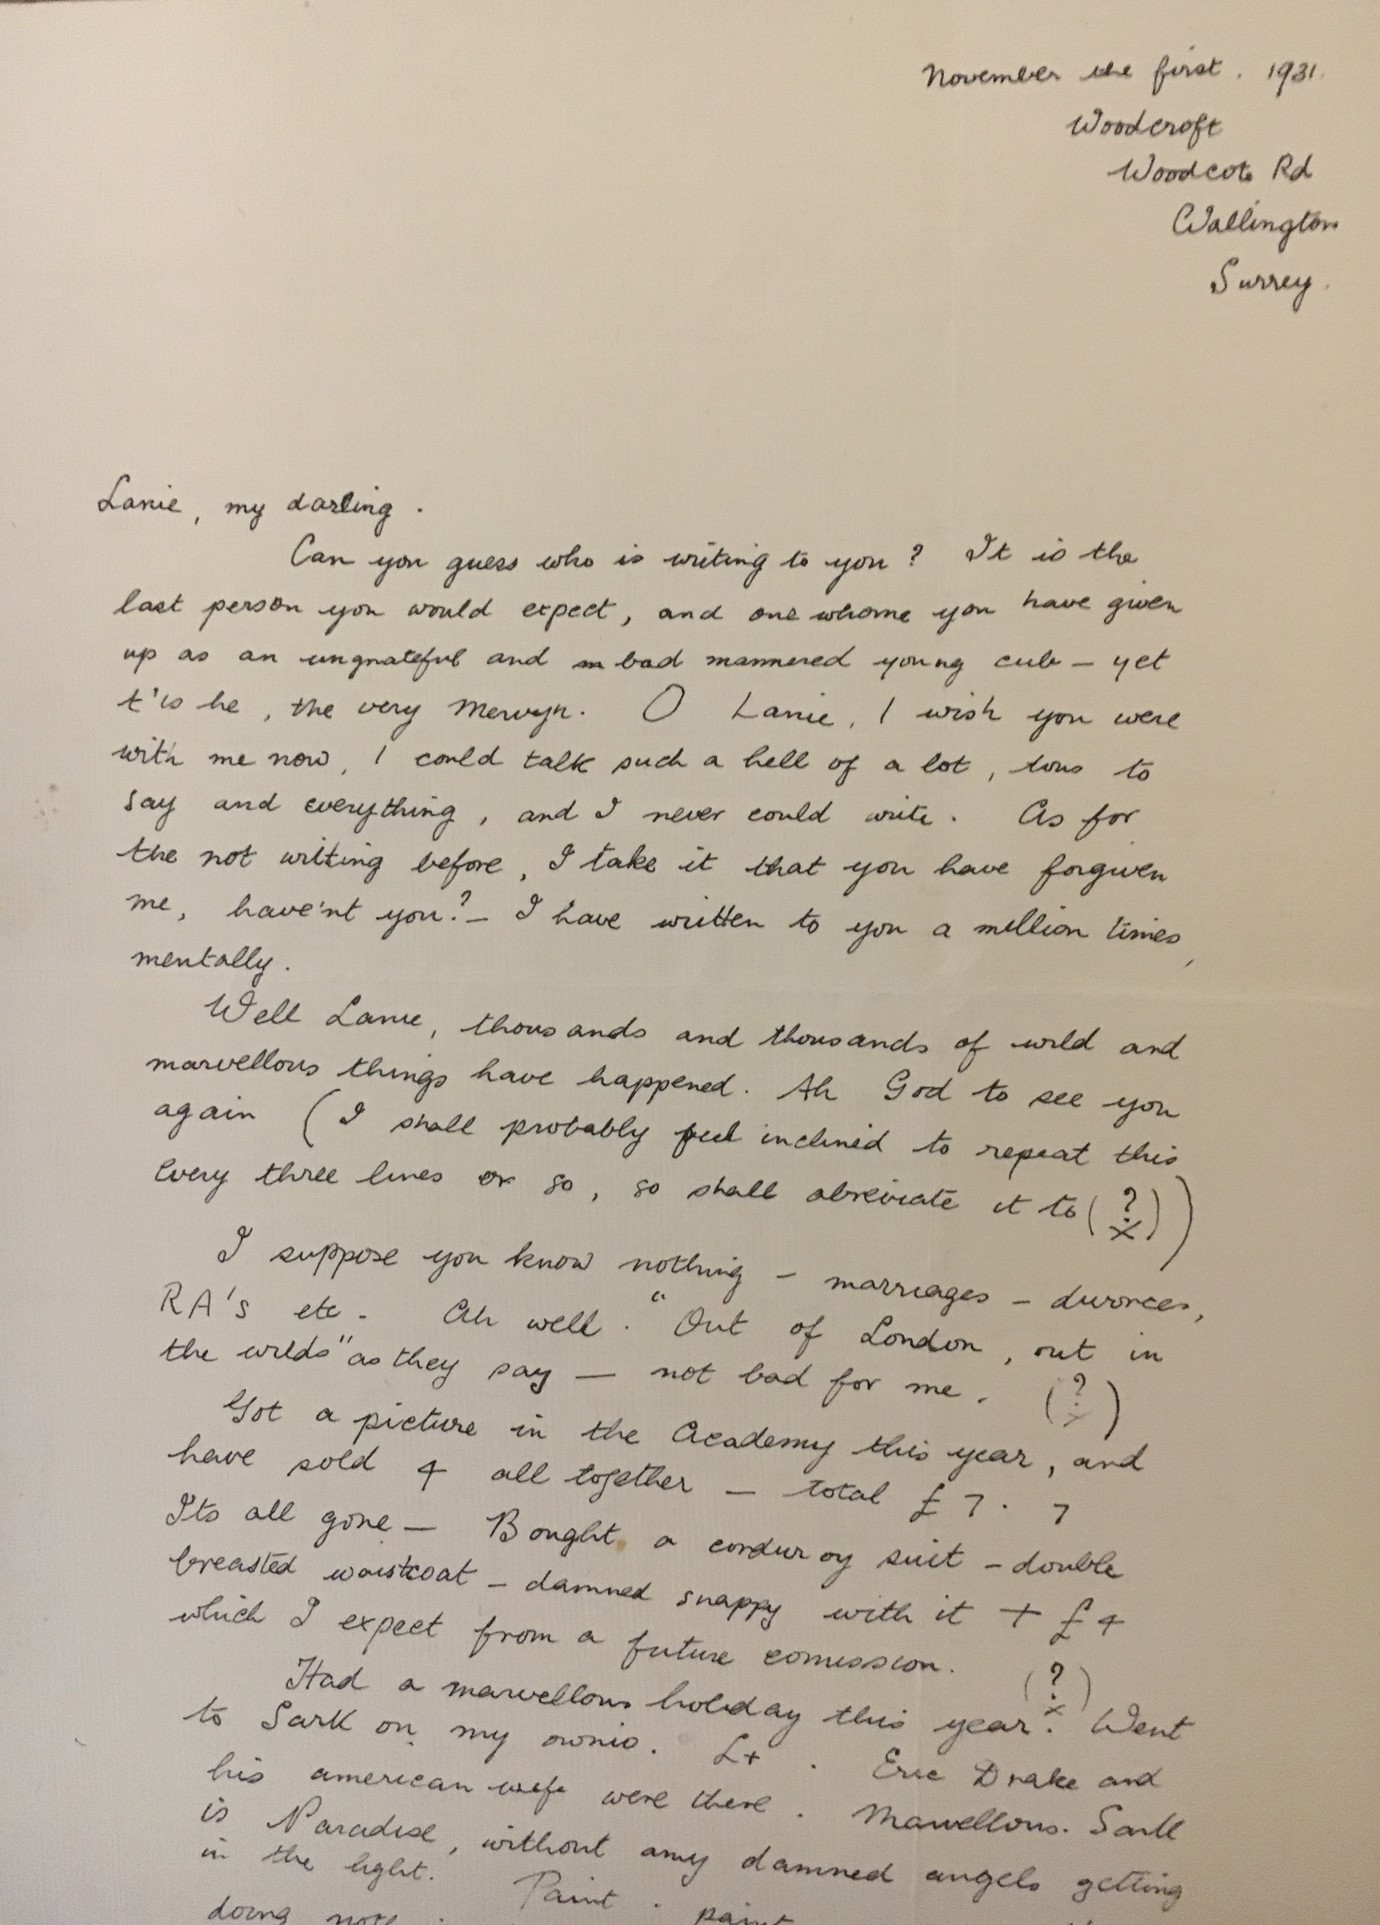 November the first. 1931.
Woodcroft
Woodcote Rd
Wallington
Surrey.
Lanie, my darling.
Can you guess who is writing to you? It is the
last person you would expect, and one whome you have given
up as an ungrateful and bad mannered young cub – yet
t'is he, the very Mervyn. O Lanie, I wish you were
with me now, I could talk such a hell of a lot, tons to
say and everything, and I never could write. As for
the not writing before, I take it that you have forgiven
me, have'nt you? – I have written to you a million times,
mentally.
Well Lanie, thousands and thousands of wild and
marvellous things have happened. Ah God to see you
again (I shall probably feel inclined to repeat this
every three lines or so, so shall abreviate it to (?x))
I suppose you know nothing – marriages – divorces,
RA's etc – Ah well. "Out of London, out in
the wilds" as they say — not bad for me. (?x)
Got a picture in the Academy this year, and
have sold 4 all together – total £7.7
Its all gone – Bought a corduroy suit – double
breasted waistcoat – damned snappy with it + £4
which I expect from a future comission. (?x)
Had a marvellous holiday this year. Went
to Sark on my ownio. Eric Drake and
his american wife were there. Marvellous. Sark
is Paradise, without any damned angels getting
in the light. Paint. paint
doing